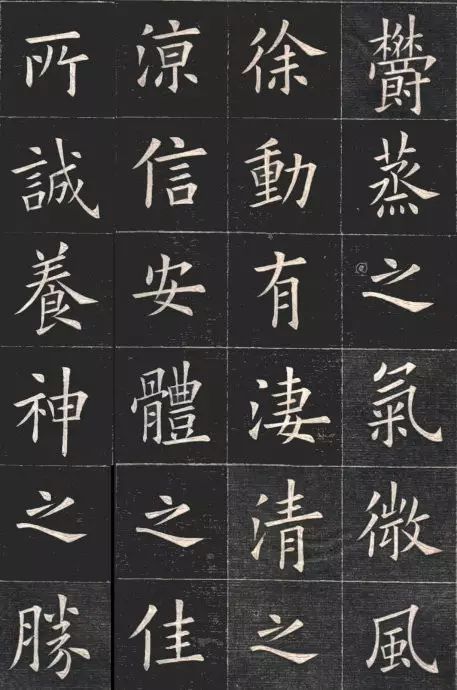 欝蒸之氣微風
徐動有淒清之
凉信安體之佳
所誠養神之勝